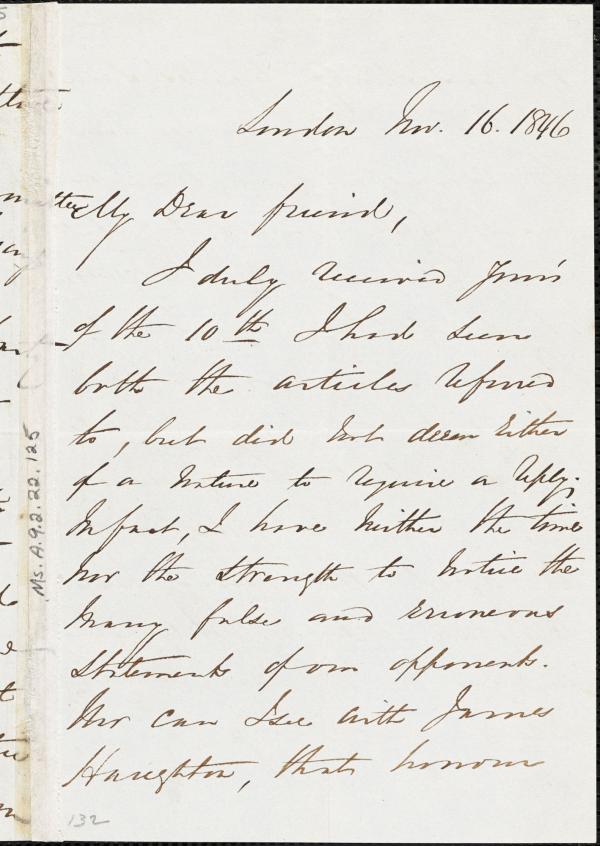 London Nov. 16. 1846
My Dear friend,
I duly received yours
of the 10th I had seen
both the articles refered
to, but did not deem either
of a nature to require a reply.
Infact, I have neither the time
nor the strength to notice the
many false and erroneous
statements of our opponents.
Nor can I see with James
Haughton, that honour
Ms. A.9.2.22.125
132